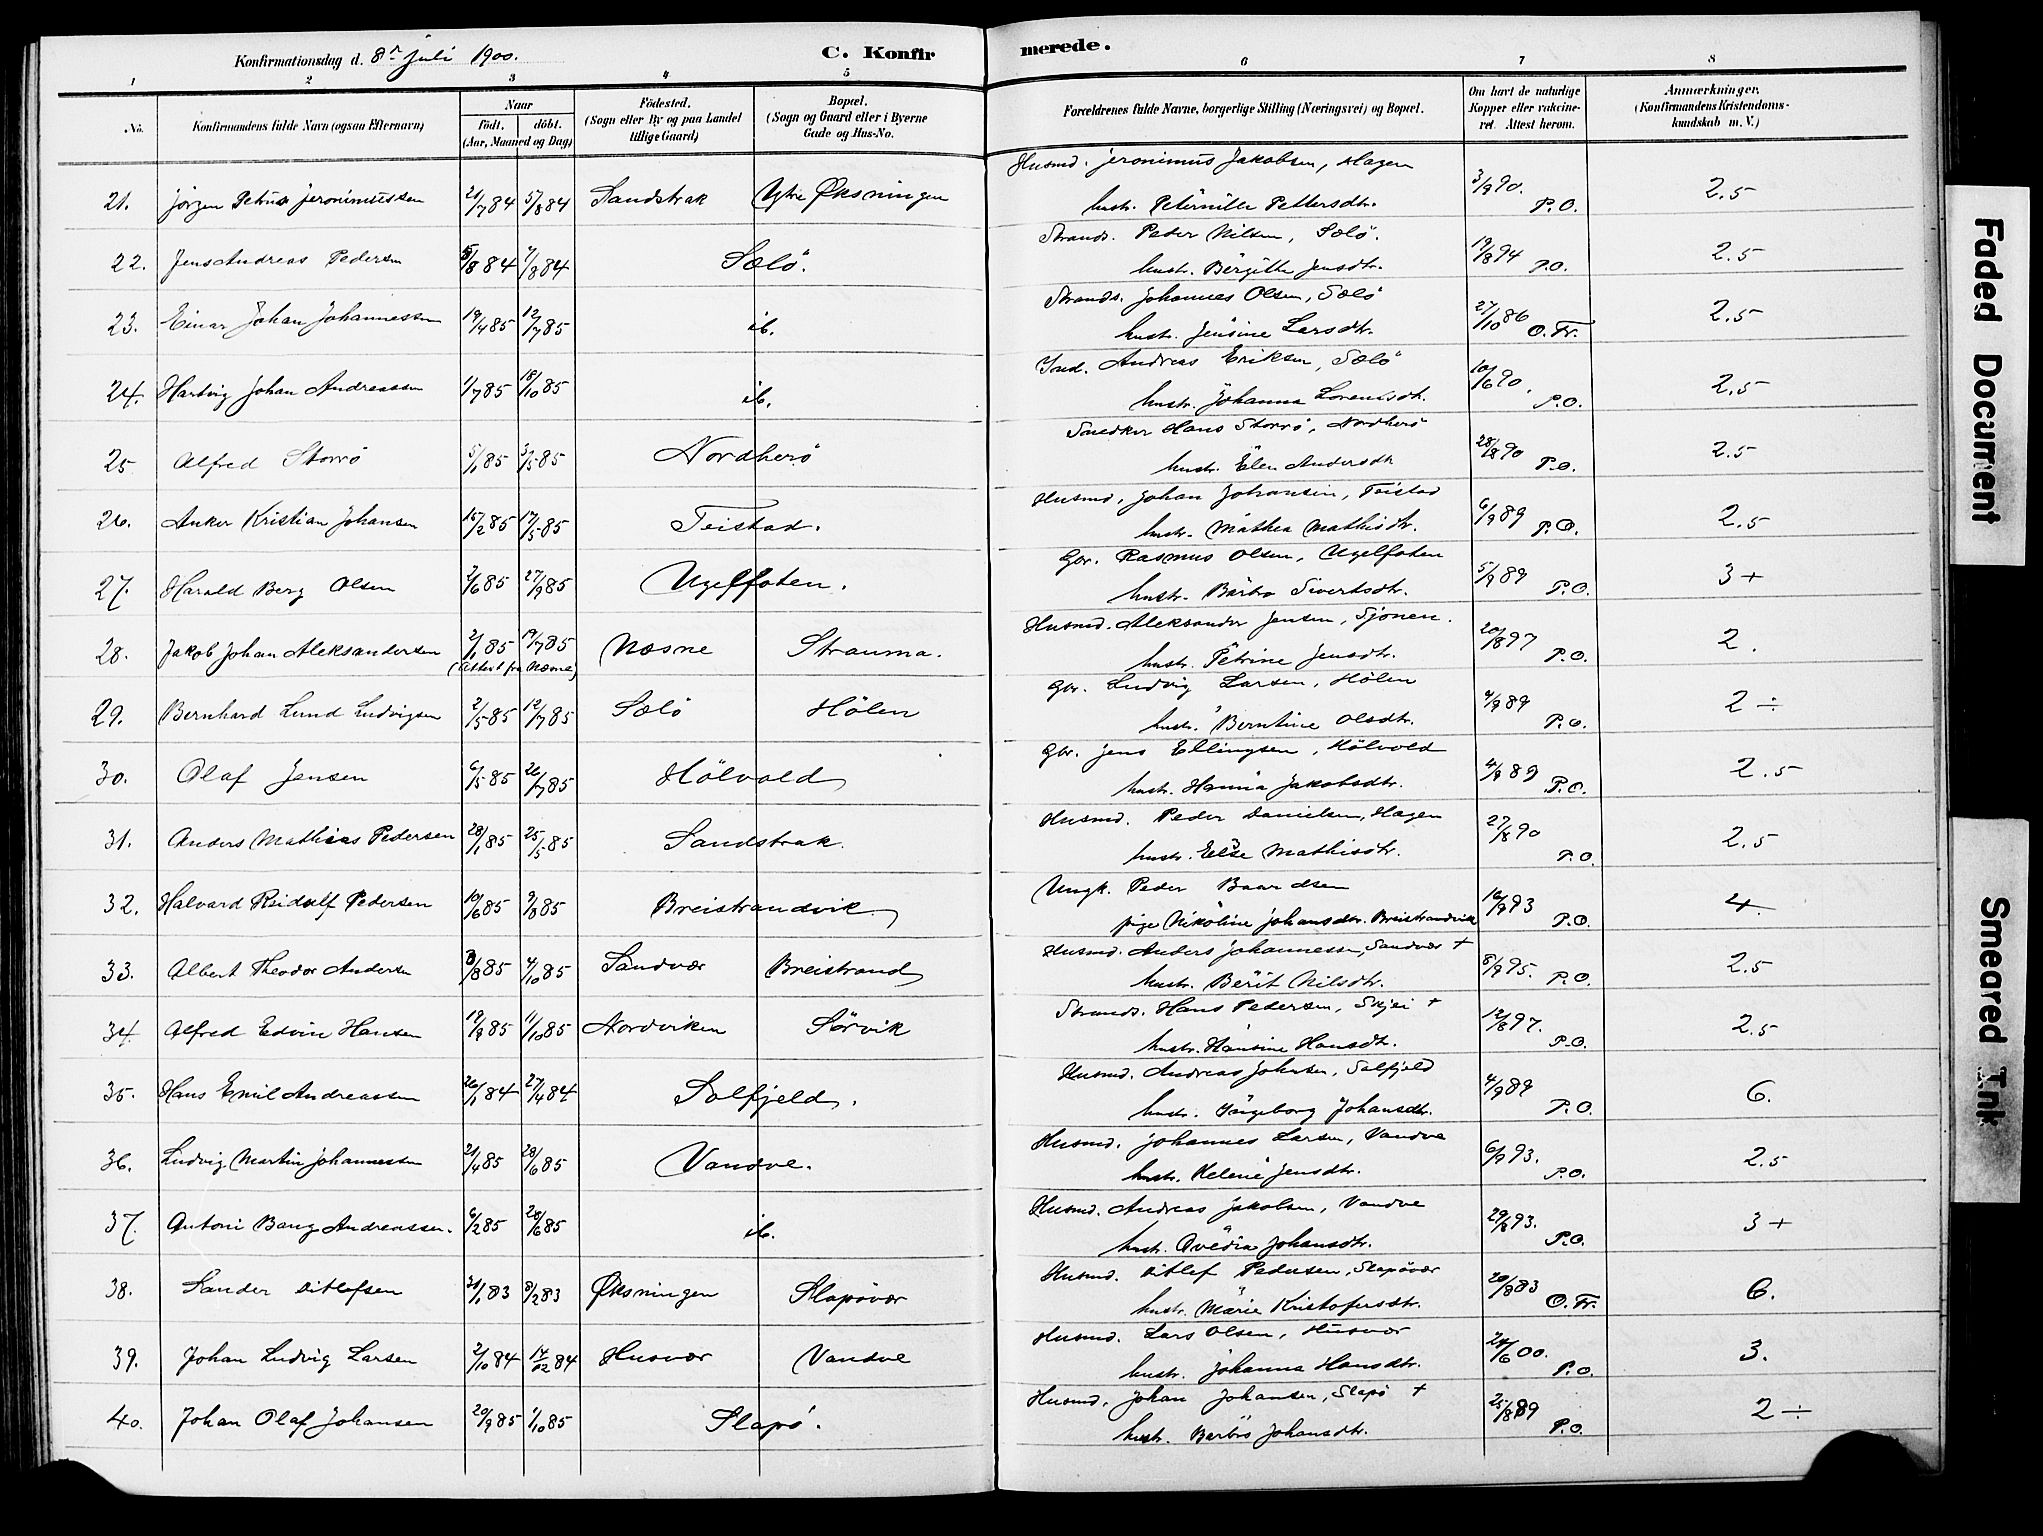 Konfirmationsdag d. 8n juli 1900.
C. Konfirmerede.
1 2 3 4 5 6 7 8
No.
Konfirmandens fulde Navn (ogsaa Efternavn)
Naar
Födt. döbt.
(Aar, Maaned og Dag)
Födested.
(Sogn eller By og paa Landet tillige Gaard)
Bopæl.
(Sogn og Gaard eller i Byerne Gade og Hus-No.
Forældrenes fulde Navne, borgerlige Stilling (Næringsvei) og Bopæl.
Om havt de naturlige Kopper eller vakcineret. Attest herom.
Anmærkninger.
(Konfirmandens Kristendomskundskab m. V.)
21. Jörgen Petrus Jeronimussen 21/7 84 5/8 84 Sandstrak Ytre Öksningen Husmd. Jeronimus Jakobsen, Hagen
hustr. Peternille Pettersdtr. 3/9 90. P.O. 2.5
22. Jens Andreas Pedersen 5/8 84 7/8 84 Sælö. Strands. Peder Nilsen, Sælö.
hustr. Bergitte Jensdtr. 19/8 94 P.O. 2.5
23. Einar Johan Johannessen 19/4 85 12/7 85 ib. Strands. Johannes Olsen, Sælö
hustr. Jensine Larsdtr. 27/10 86 O.Fr. 2.5
24. Hartvig Johan Andreassen 1/7 85 18/10 85 ib. Ind. Andreas Eriksen, Sælö
hustr. Johanna Lorentsdtr. 10/6 90. P.O. 2.5
25 Alfred Storrö 5/1 85 3/5 85 Nordherö Snedker Hans Storrö, Nordherö
hustr. Elen Andersdtr 28/8 90 P.O. 2.5
26. Anker Kristian Johansen 15/2 85 17/5 85 Teistad. Husmd. Johan Johansen, Teistad
hustr. Mathea Mathisdtr. 6/9 89 P.O. 2.5
27. Harald Berg Olsen 2/6 85 27/9 85 Ugelfoten. Gbr. Rasmus Olsen, Ugelfoten
hustr. Barbro Sivertsdtr. 5/9 89 P.O. 3+
28. Jakob Johan Aleksandersen 2/1 85 19/7 85 Næsne Strauma. Husmd. Aleksander Jensen, Sjonen.
(Attest fra Næsne) hustr. Petrine Jensdtr. 20/8 97 P.O. 2.
29. Bernhard Lund Ludvigsen 2/5 85 12/7 85 Sælö Hölen Gbr. Ludvig Larsen, Hölen
hustr. Berntine Olsdtr. 4/9 89 P.O. 2÷
30. Olaf Jensen 6/5 85 26/7 85 Hölvold Gbr. Jens Ellingsen, Hölvold
hustr. Hanna Jakobsdtr. 4/9 89 P.O. 2.5
31. Anders Mathias Pedersen 28/1 85 25/5 85 Sandstrak. Husmd. Peder Danielsen, Hagen
hustr. Else Mathisdtr. 27/8 90 P.O. 2.5
32. Halvard Reidulf Pedersen 10/6 85 9/8 85 Breistrandvik. Ungk. Peder Baardsen
pige Nikoline Johansdtr. Breistrandvik 16/9 93 P.O. 4.
33. Albert Theodor Andersen 3/8 85 4/10 85 Sandvær Breistrand Husmd. Anders Johannessen, Sandvær +
hustr. Berit Nilsdtr. 8/9 95. P.O. 2.5
34. Alfred Edvin Hansen 19/9 85 11/10 85 Nordviken Sörvik Strands. Hans Pedersen, Skjei +
hustr. Hansine Hansdtr. 12/8 97. P.O. 2.5
35. Hans Emil Andreassen 26/1 84 27/4 84 Solfjeld. Husmd. Andreas Johnsen, Solfjeld
hustr. Ingeborg Johansdtr. 4/9 89 P.O. 6.
36. Ludvig Martin Johannessen 21/4 85 28/6 85 Vandve. Husmd. Johannes Larsen, Vandve
hustr. Helene Jensdtr. 6/9 93. P.O. 2.5
37. Antoni Bang Andreassen. 6/2 85 28/6 85 ib. Husmd. Andreas Jakobsen, Vandve
hustr. Ovedia Johansdtr. 29/8 93. P.O. 3+
38. Sander Ditlefsen 31/1 83 8/2 83 Öksningen Slapövær Husmd. Ditlef Pedersen, Slapövær
hustr. Marie Kristofersdtr. 20/9 83 O.Fr. 6.
39. Johan Ludvig Larsen 2/10 84 14/12 84 Husvær Vandve Husmd. Lars Olsen, Husvær
hustr. Johanna Hansdtr. 24/6 00. P.O. 3.
40. Johan Olaf Johansen 20/9 85 1/10 85 Slapö. Husmd. Johan Johansen, Slapö +
hustr. Barbro Johansdtr. 25/8 89 P.O. 2÷
Faded Document
Smeared Ink